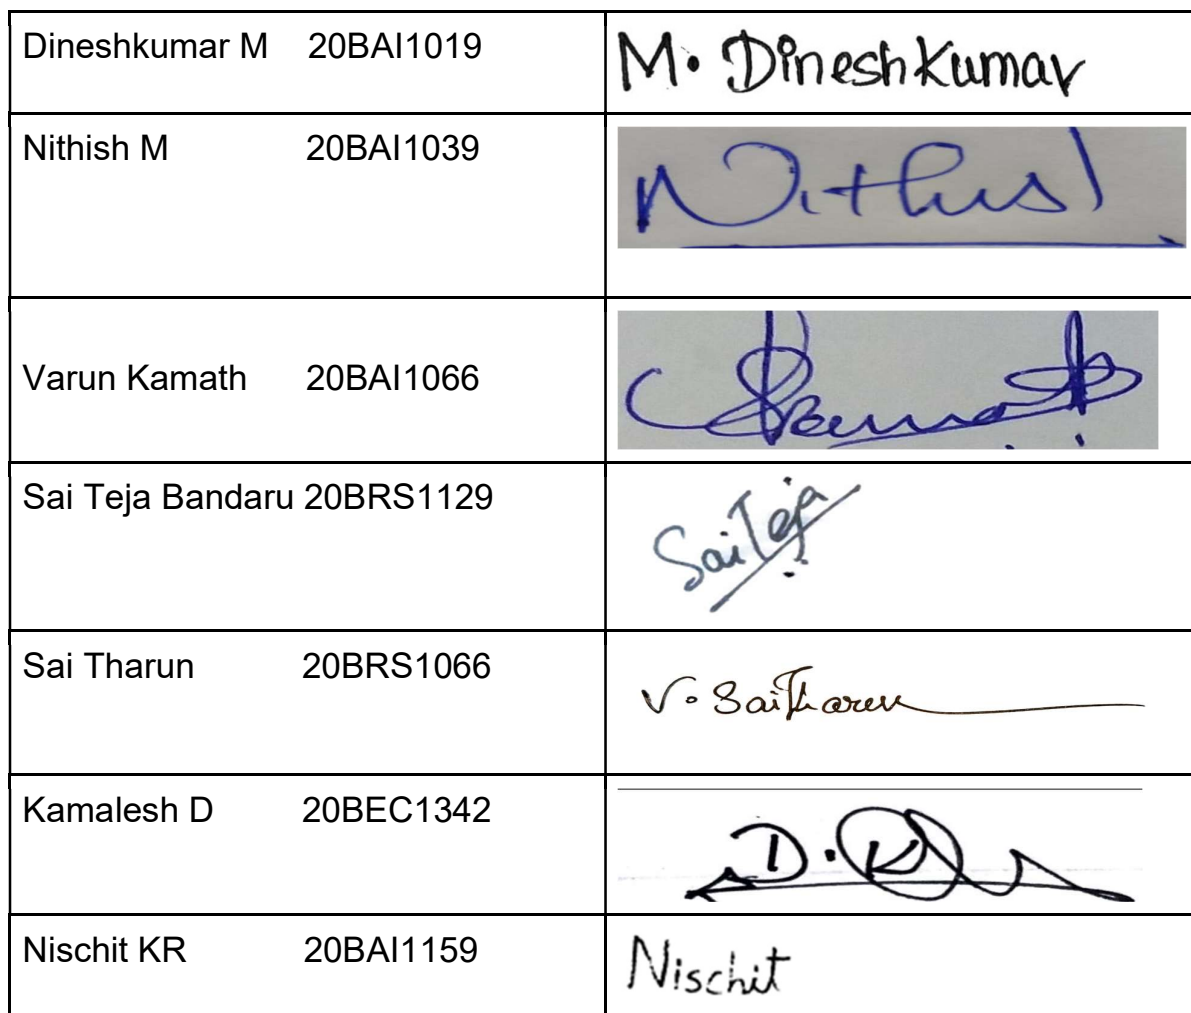 Dineshkumar M 20BAI1019 M. Dineshkumar
Nithish M 20BAI1039 Nithish
Varun Kamath 20BAI1066 Kamath
Sai Teja Bandaru 20BRS1129 SaiTeja
Sai Tharun 20BRS1066 V. SaiTharun
Kamalesh D 20BEC1342 D.K
Nischit KR 20BAI1159 Nischit